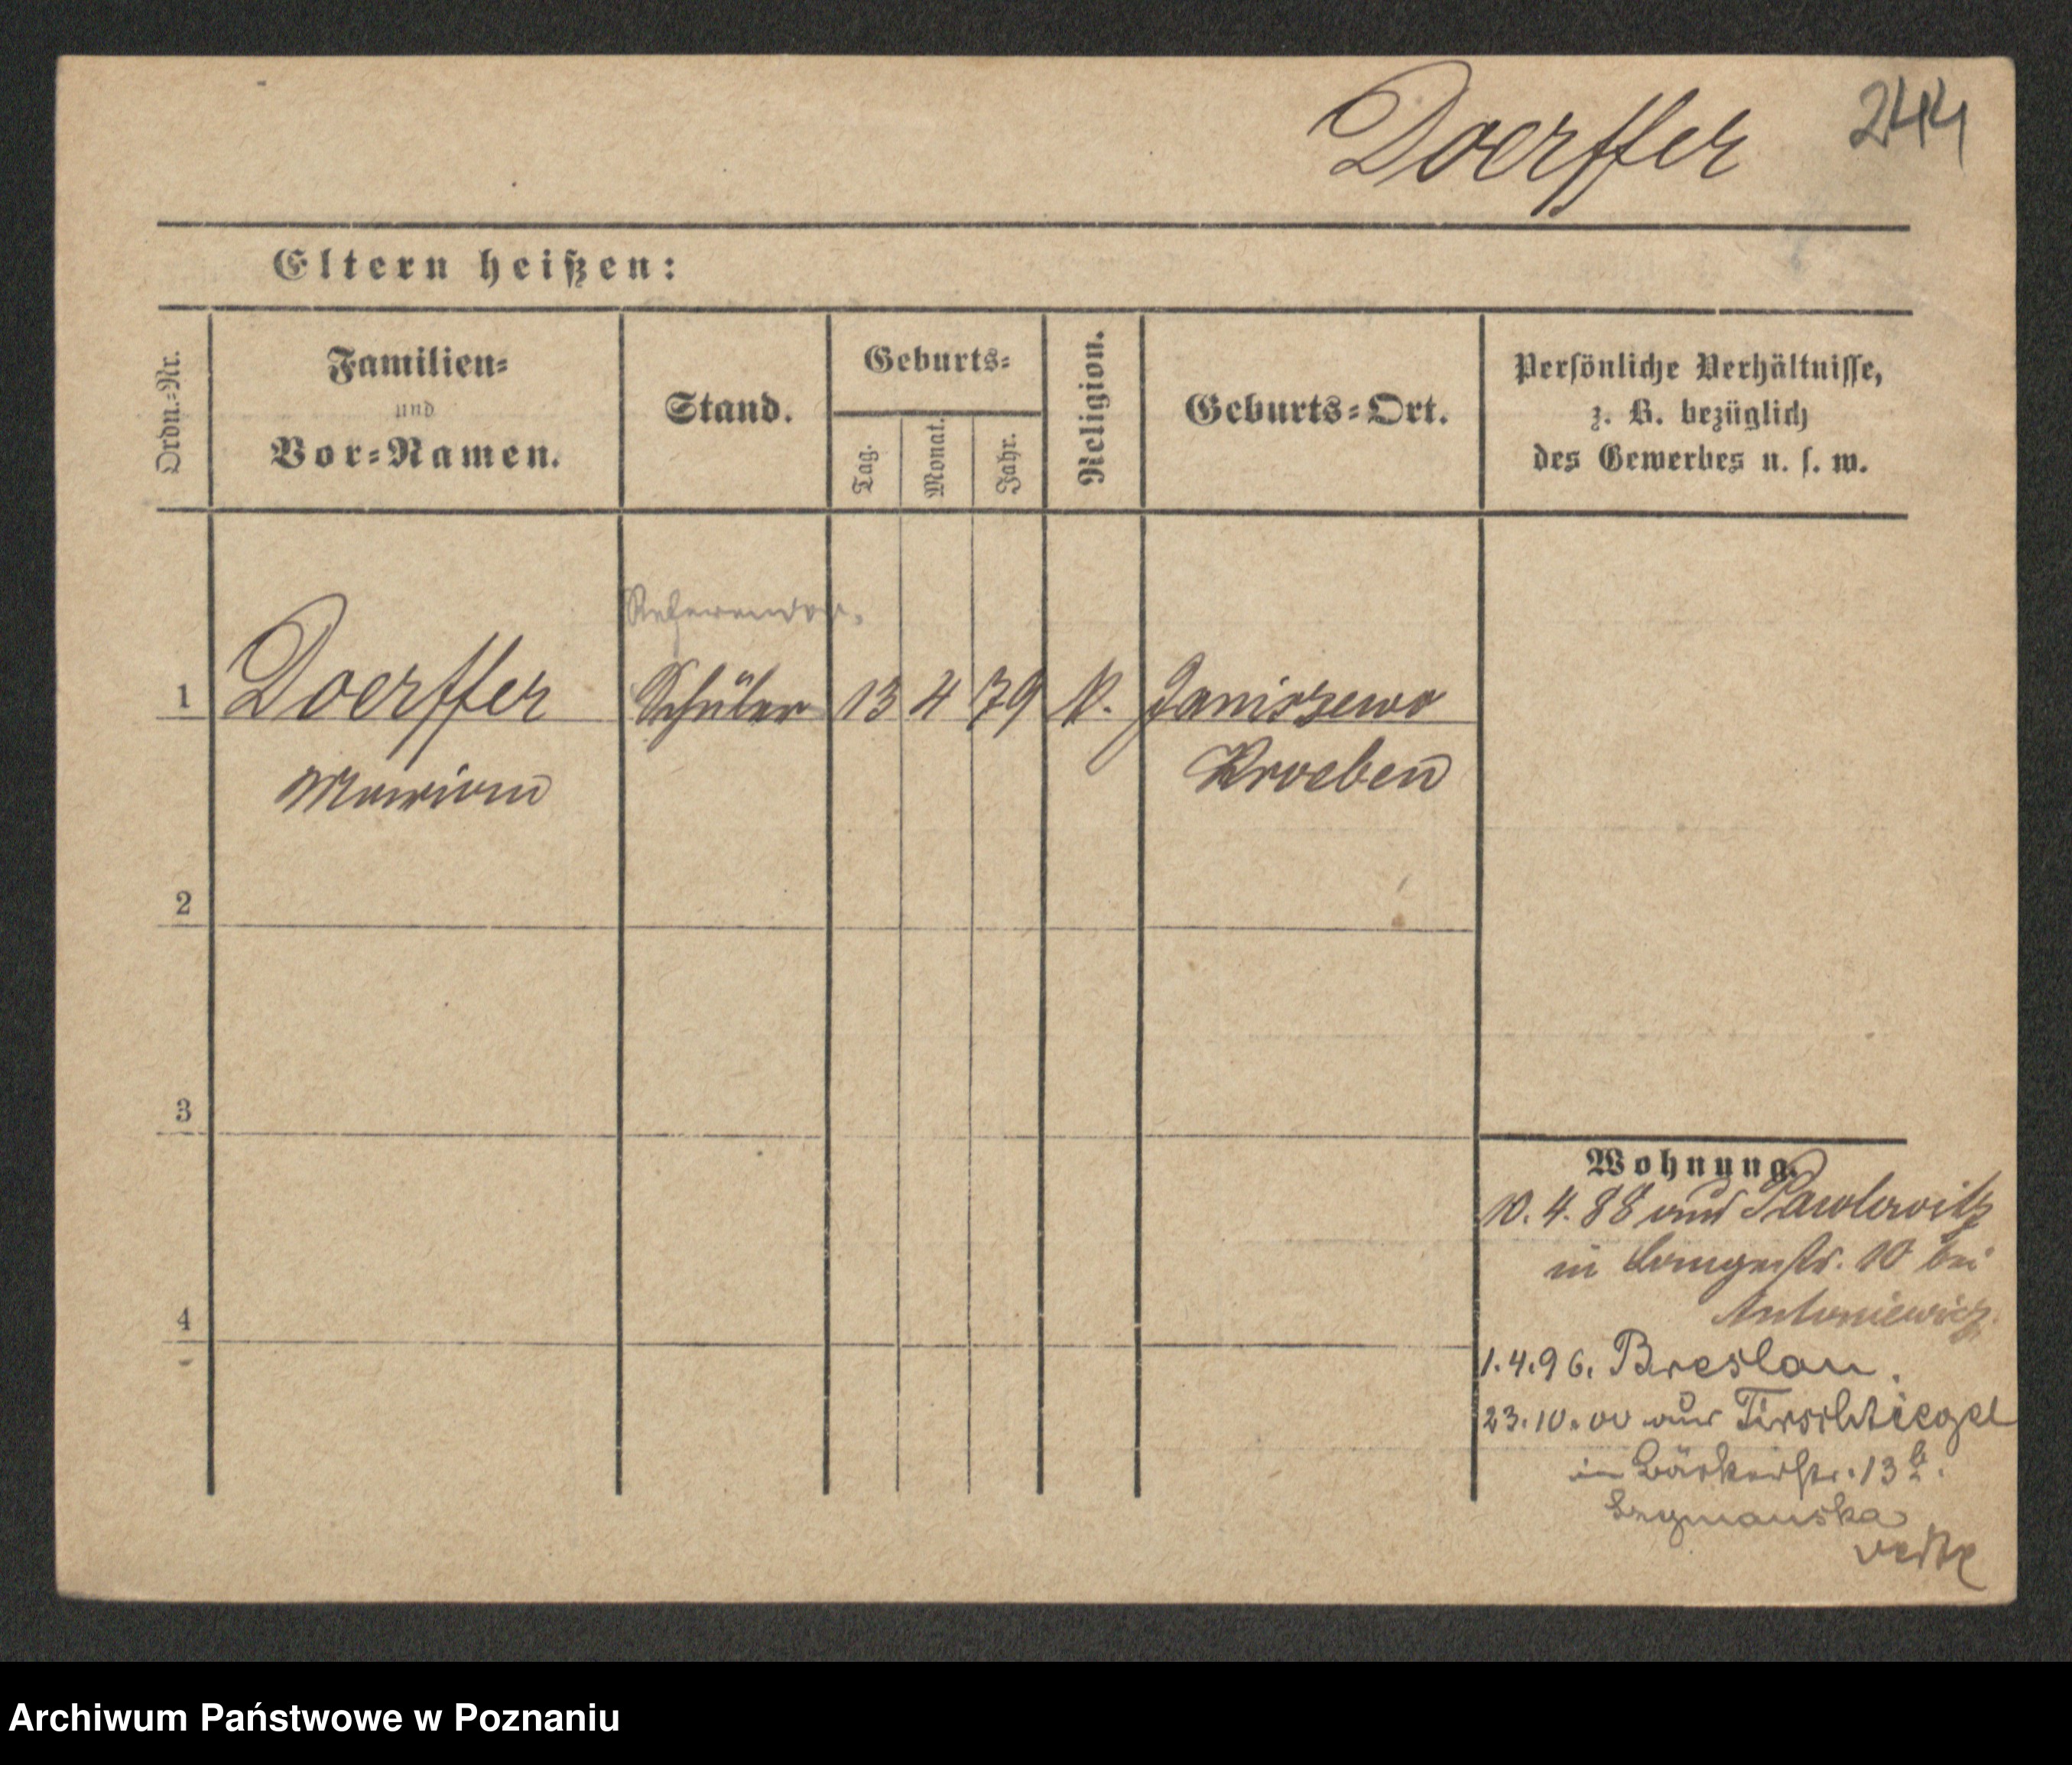 Doerffer 244
Eltern heißen:
Ordn.-Nr.
Familien-
und
Vor-Namen.
Stand.
Geburts-
Tag.
Monat.
Jahr.
Religion.
Geburts-Ort.
Persönliche Verhältnisse,
z. B. bezüglich
des Gewerbes u. s. w.
Referendar.
1 Doerffer Schüler 13 4 79 K. Janiszewo
Marian Kroeben
2
3
4
Wohnung.
10. 4. 88 aus Pawlowitz
in Langestr. 10 bei
Antoniewicz
1.4.96. Breslau.
23.10.00 aus Tirschtiegel
in Bäckerstr. 13
Szymanska
Archiwum Państwowe w Poznaniu